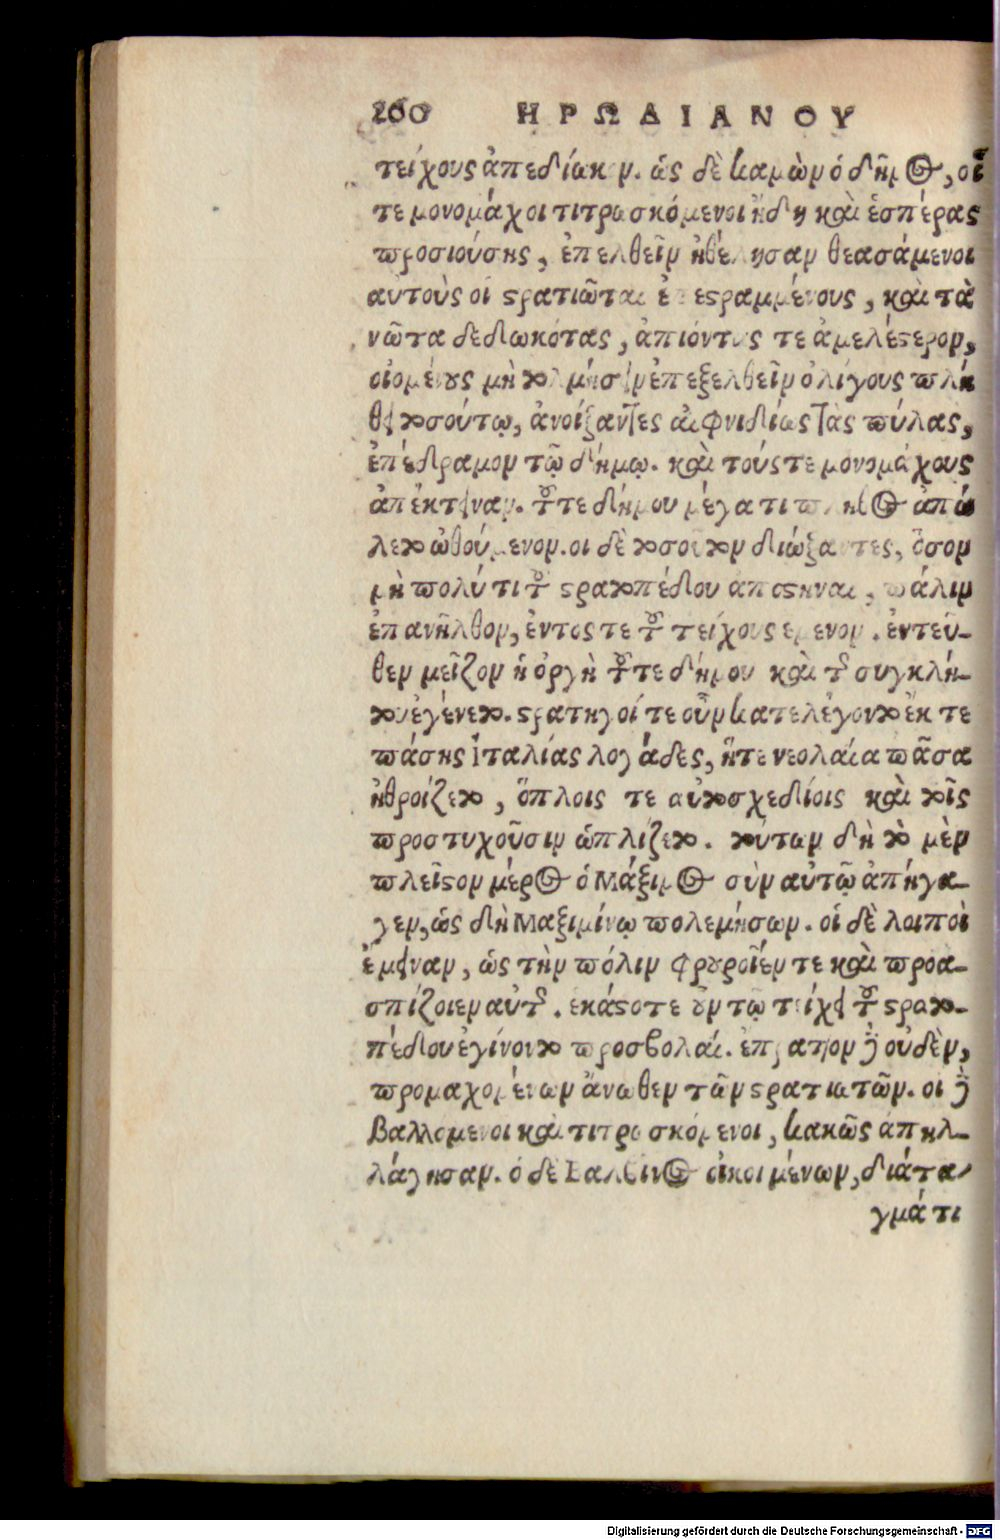 260 ΗΡΩΔΙΑΝΟΥ
τείχους ἀπεδίωκον. ὡς δὲ καμὼν ὁ δῆμος, οἵ
τε μονομάχοι τιτρωσκόμενοι ἤδη καὶ ἑσπέρας
προσιούσης, ἐπελθεῖν ἠθέλησαν θεασάμενοι
αὐτοὺς οἱ στρατιῶται ἐπεστραμμένους, καὶ τὰ
νῶτα δεδωκότας, ἀπιόντας τε ἀμελέστερον,
οἰομένους μὴ τολμήσειν ἐπεξελθεῖν ὀλίγους πλή
θει τοσούτῳ, ἀνοίξαντες αἰφνιδίως τὰς πύλας,
ἐπέδραμον τῷ δήμῳ. καὶ τούς τε μονομάχους
ἀπέκτειναν. τοῦ τε δήμου μέγα τι πλῆθος ἀπώ
λετο ὠθούμενον. οι δὲ τοσοῦτον διώξαντες, ὅσον
μὴ πολύ τι τοῦ στρατοπέδου αποστῆναι, πάλιν
ἐπανῆλθον, ἐντος τε τοῦ τείχους εμενον. ἐντεῦ-
θεν μεῖζον ἡ ὀργὴ τοῦ τε δήμου καὶ τῆς συγκλή-
του ἐγένετο. στρατηγοί τε οὖν κατελέγοντο ἔκ τε
πάσης Ἰταλίας λογάδες, ἥτε νεολαία πᾶσα
ἠθροίζετο, ὅπλοις τε αὐτοσχεδίοις καὶ τοῖς
προστυχοῦσιν ὡπλίζετο. τούτων δὴ τὸ μὲν
πλεῖστον μέρος ὁ Μάξιμος σὺν αὐτῷ ἀπήγα-
γεν, ὡς δὴ Μαξιμίνῳ πολεμήσων. οἱ δὲ λοιποὶ
ἔμειναν, ὡς τὴν πόλιν φρουροῖέν τε καὶ προα-
σπίζοιεν αὐτῆς. ἑκάστοτε οὖν τῷ τείχει τοῦ στρατο-
πέδου ἐγίνοντο προσβολαί. ἐπραττον δὲ οὐδὲν,
προμαχομένων ἄνωθεν τῶν στρατιωτῶν. οι δὲ
βαλλομενοι καὶ τιτρωσκόμενοι, κακῶς ἀπηλ-
λάγησαν. ὁ δὲ Βαλβῖνος οἴκοι μένων, διάτα-
γμά τι
Digitalisierung gefördert durch die Deutsche Forschungsgemeinschaft - DFG